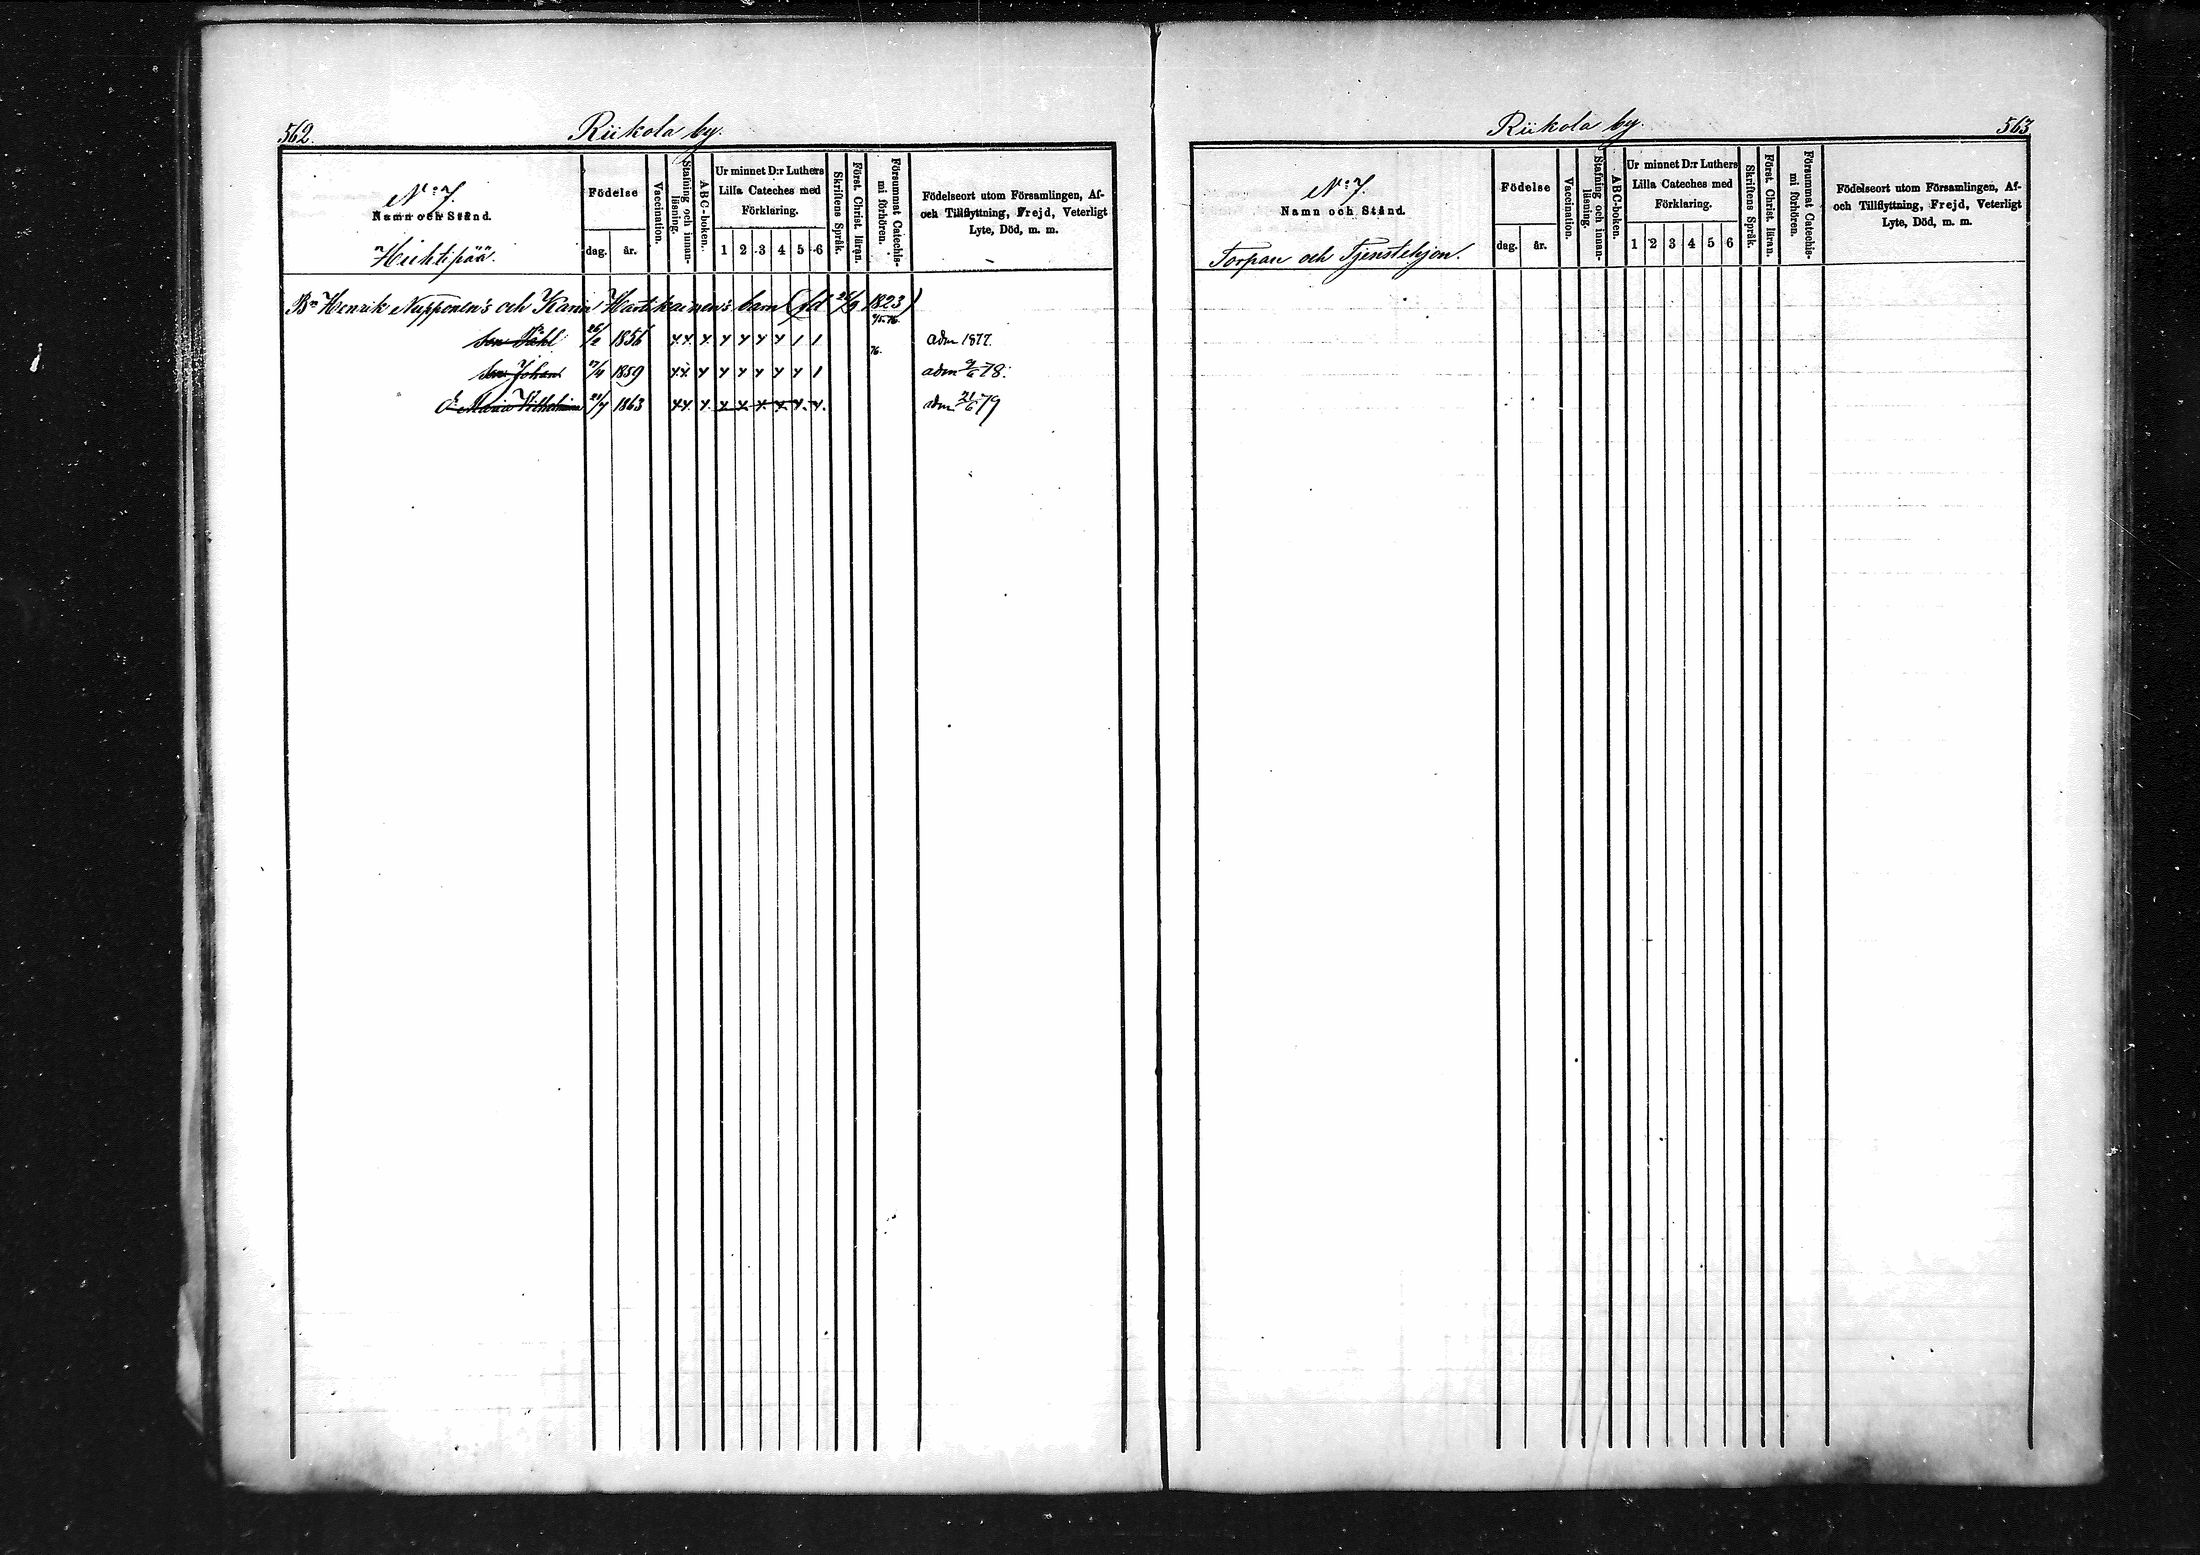 562.
Riikola by.
N:o 7.
Namn och Stånd.
Huhtipää.
Födelse
dag. år.
Vaccination.
Stafning och innan-
läsning.
ABC-boken.
Ur minnet D:r Luthers
Lilla Cateches med
Förklaring.
1 2 3 4 5 6
Skriftens Språk.
Först. Christ. läran.
Försummat Catechis-
mi förhören.
Födelseort utom Församlingen, Af-
och Tillflyttning, Frejd, Veterligt
Lyte, Död, m. m.
Henrik Nupponen's och Karin Hartikainen's barn (fd 1823)
son Påhl 26/2 1856 adm 1877.
son Johan 1859 adm 78.
Maria Vilhelmina 1863 adm 21/6 79
Riikola by.
563
N:o 7.
Namn och Stånd.
Torpare och Tjenstehjon.
Födelse
dag. år.
Vaccination.
Stafning och innan-
läsning.
ABC-boken.
Ur minnet D:r Luthers
Lilla Cateches med
Förklaring.
1 2 3 4 5 6
Skriftens Språk.
Först. Christ. läran.
Försummat Catechis-
mi förhören.
Födelseort utom Församlingen, Af-
och Tillflyttning, Frejd, Veterligt
Lyte, Död, m. m.